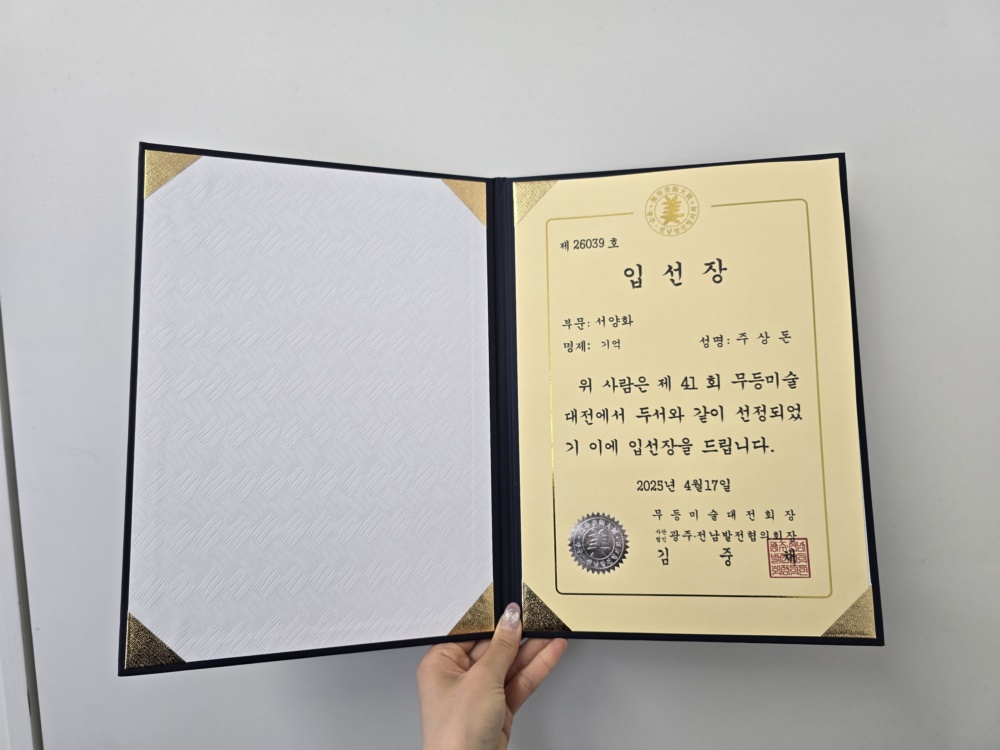 제 26039 호
입선장
부문: 서양화
명제: 기억
성명: 주 상 돈
위 사람은 제 41 회 무등미술
대전에서 두서와 같이 선정되었
기 이에 입선장을 드립니다.
2025년 4월17일
무등미술대전회장
사단법인 광주·전남발전협의회장
김 중 채